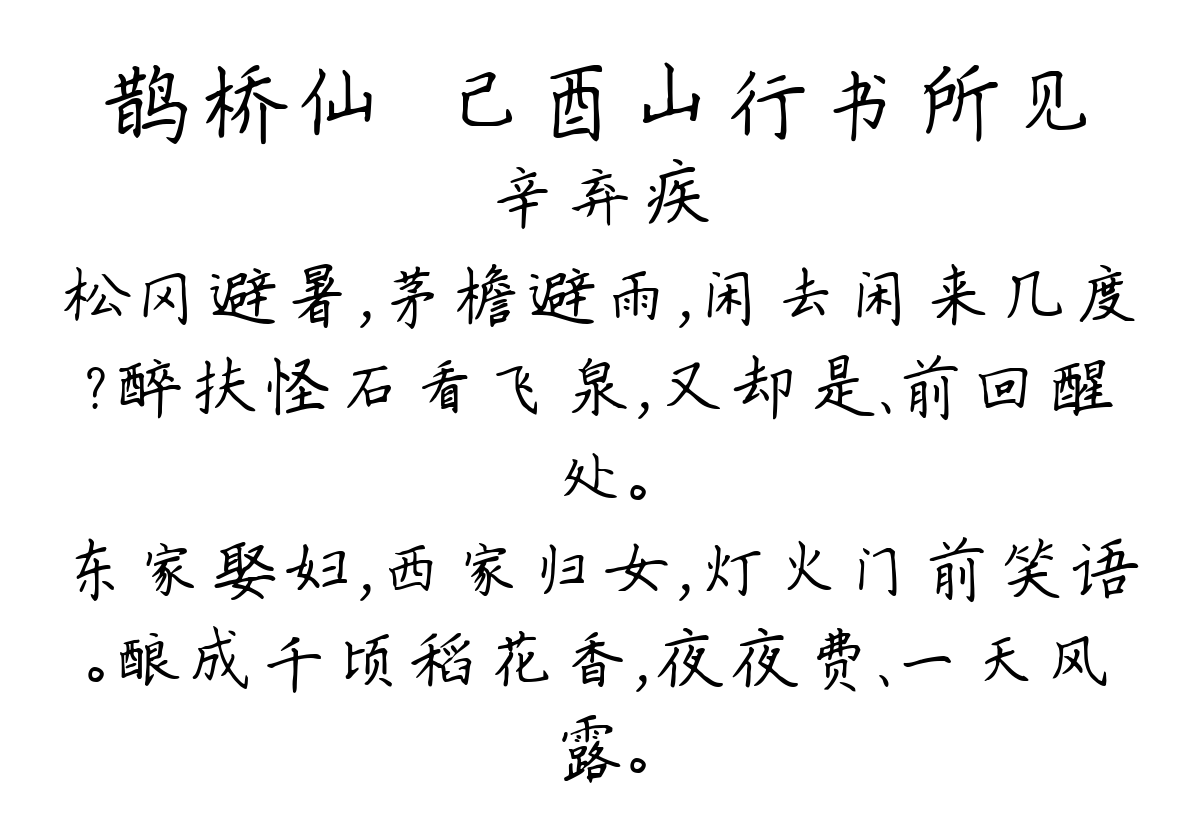 鹊桥仙 己酉山行书所见
辛弃疾
松冈避暑,茅檐避雨,闲去闲来几度
?醉扶怪石看飞泉,又却是、前回醒
处。
东家娶妇,西家归女,灯火门前笑语
。酿成千顷稻花香,夜夜费、一天风
露。